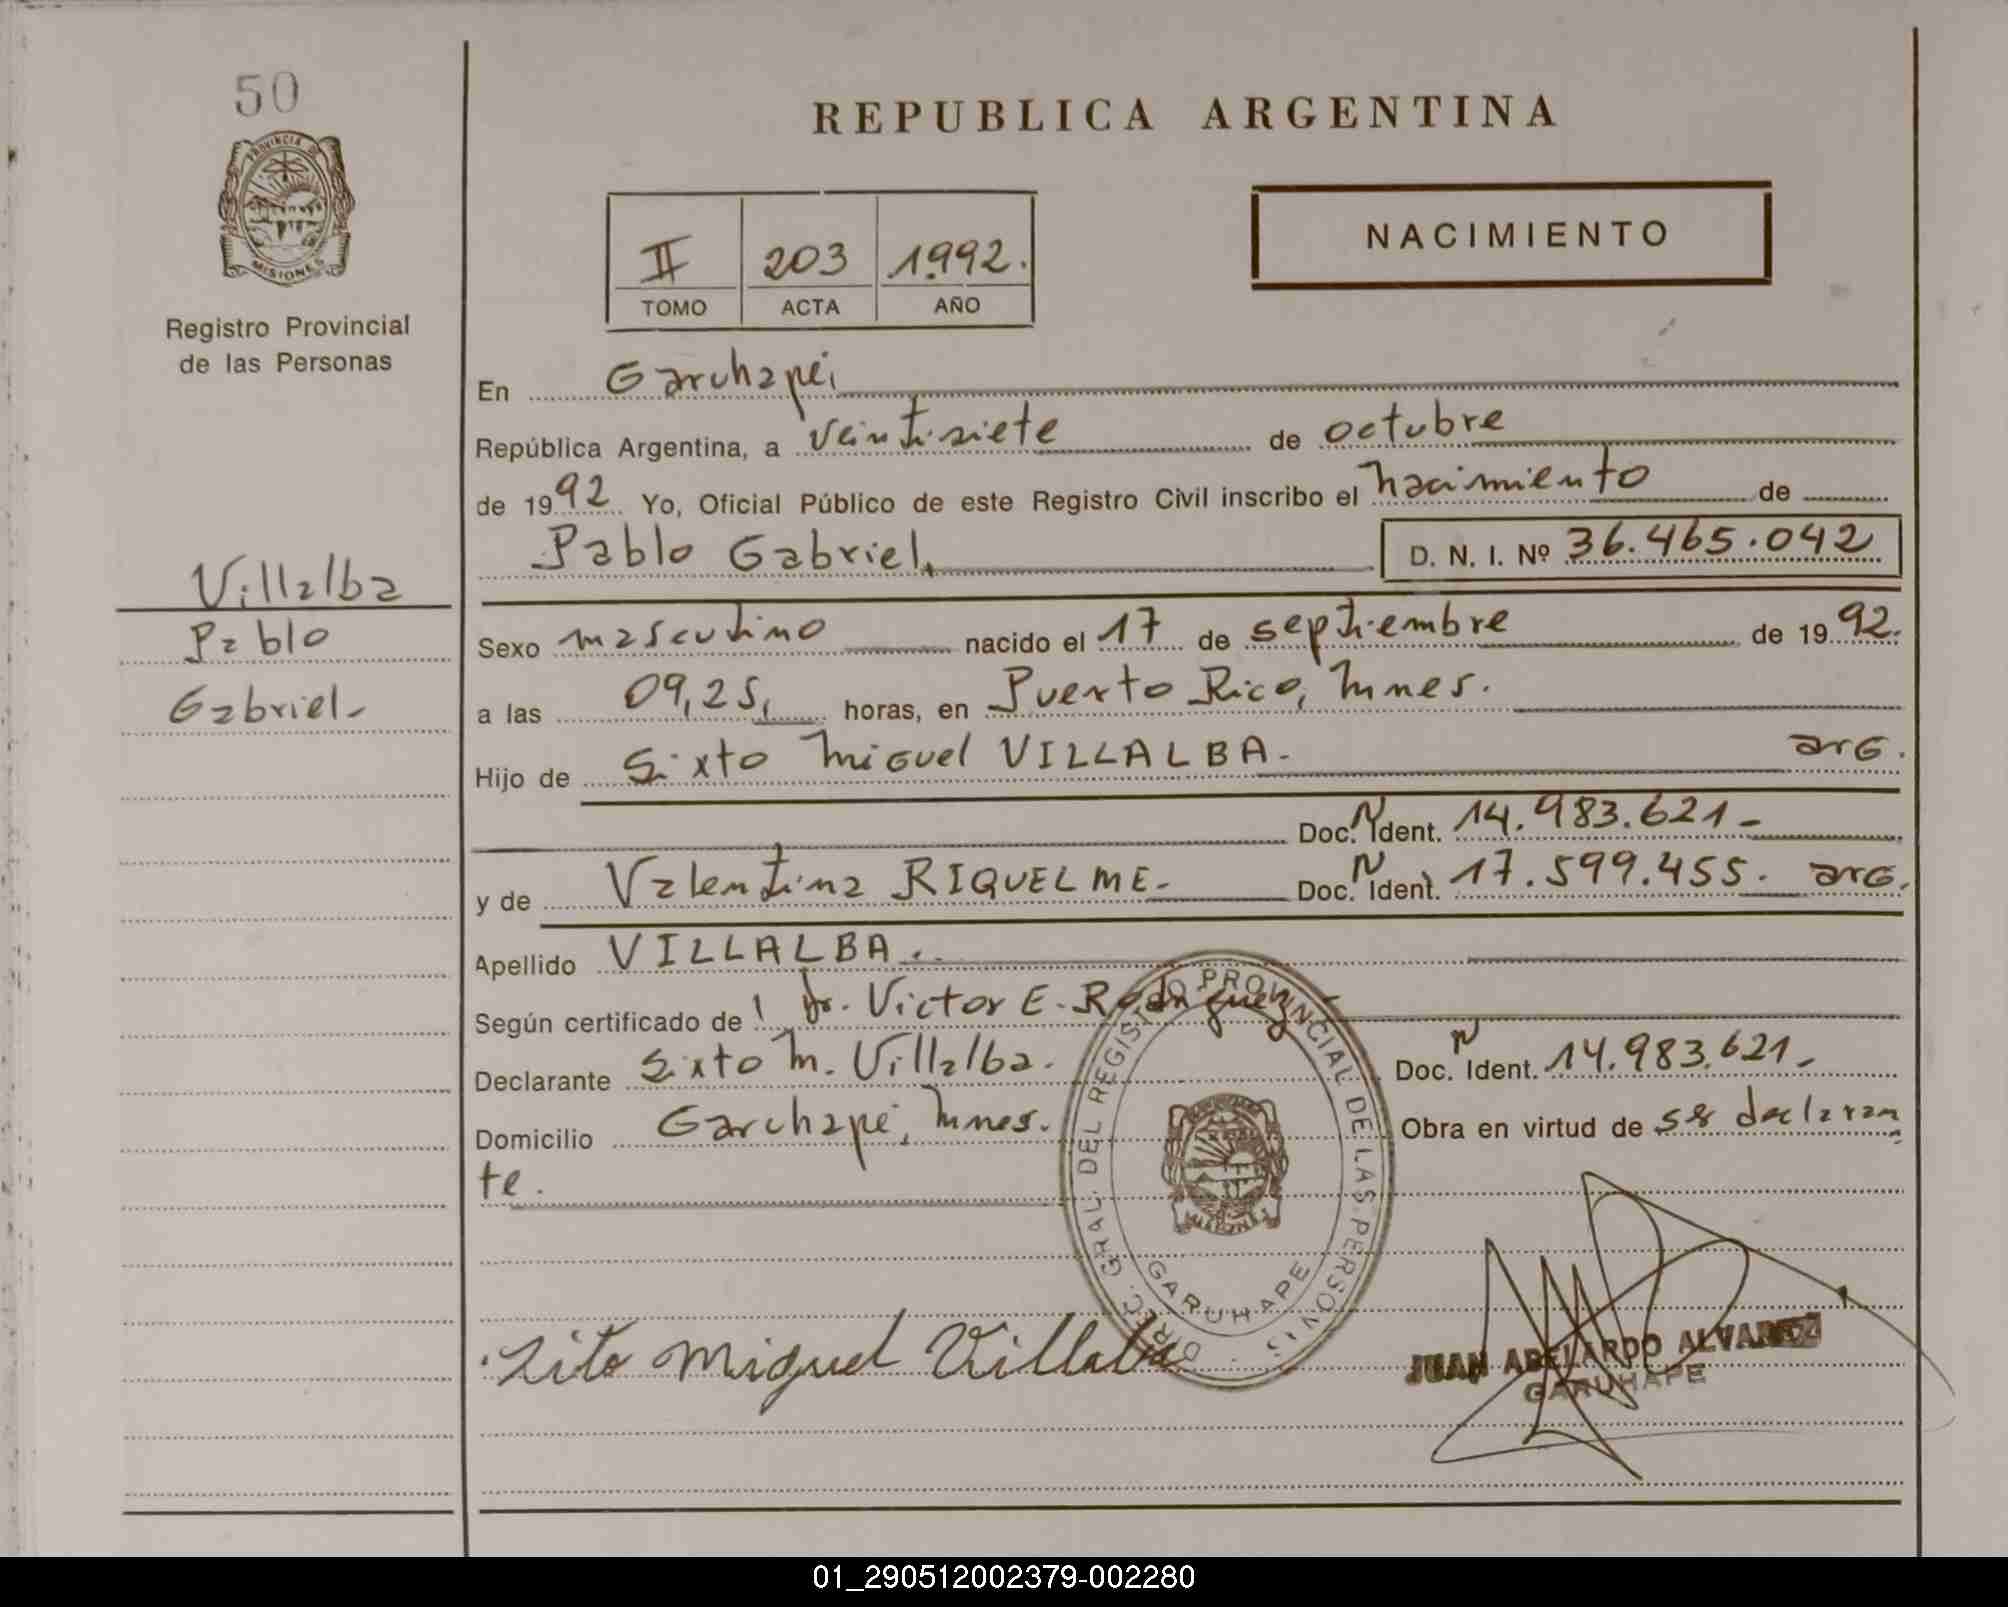 50
PROVINCIA DE
MISIONES
Registro Provincial
de las Personas
Villalba
Pablo
Gabriel-
REPUBLICA ARGENTINA
NACIMIENTO
II 203 1992.
TOMO ACTA AÑO
En Garuhapé,
República Argentina, a veintisiete de octubre
de 1992 Yo, Oficial Público de este Registro Civil inscribo el nacimiento de
Pablo Gabriel, D. N. I. Nº 36.465.042
Sexo masculino nacido el 17 de septiembre de 1992.
a las 09,25, horas, en Puerto Rico, Mnes.
Hijo de Sixto Miguel VILLALBA.- arG.
Doc. N Ident. 14.983.621-
y de Valentina RIQUELME.- Doc. N Ident. 17.599.455. arG.
Apellido VILLALBA.
Según certificado de Dr. Victor E. Rodriguez
Declarante Sixto M. Villalba. Doc. N Ident. 14.983.621-
Domicilio Garuhapé, Mnes. Obra en virtud de ser declaran
te.
DIREC. GRAL. DEL REGISTRO PROVINCIAL DE LAS PERSONAS
GARUHAPE
Miguel Villalba
JUAN ABELARDO ALVAREZ
GARUHAPE
01_290512002379-002280